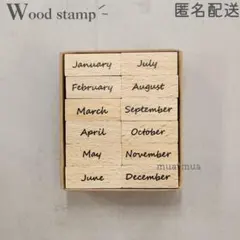 Wood stamp
匿名配送
January
July
February
August
March
September
April
October
May
November
June
December
muu mua